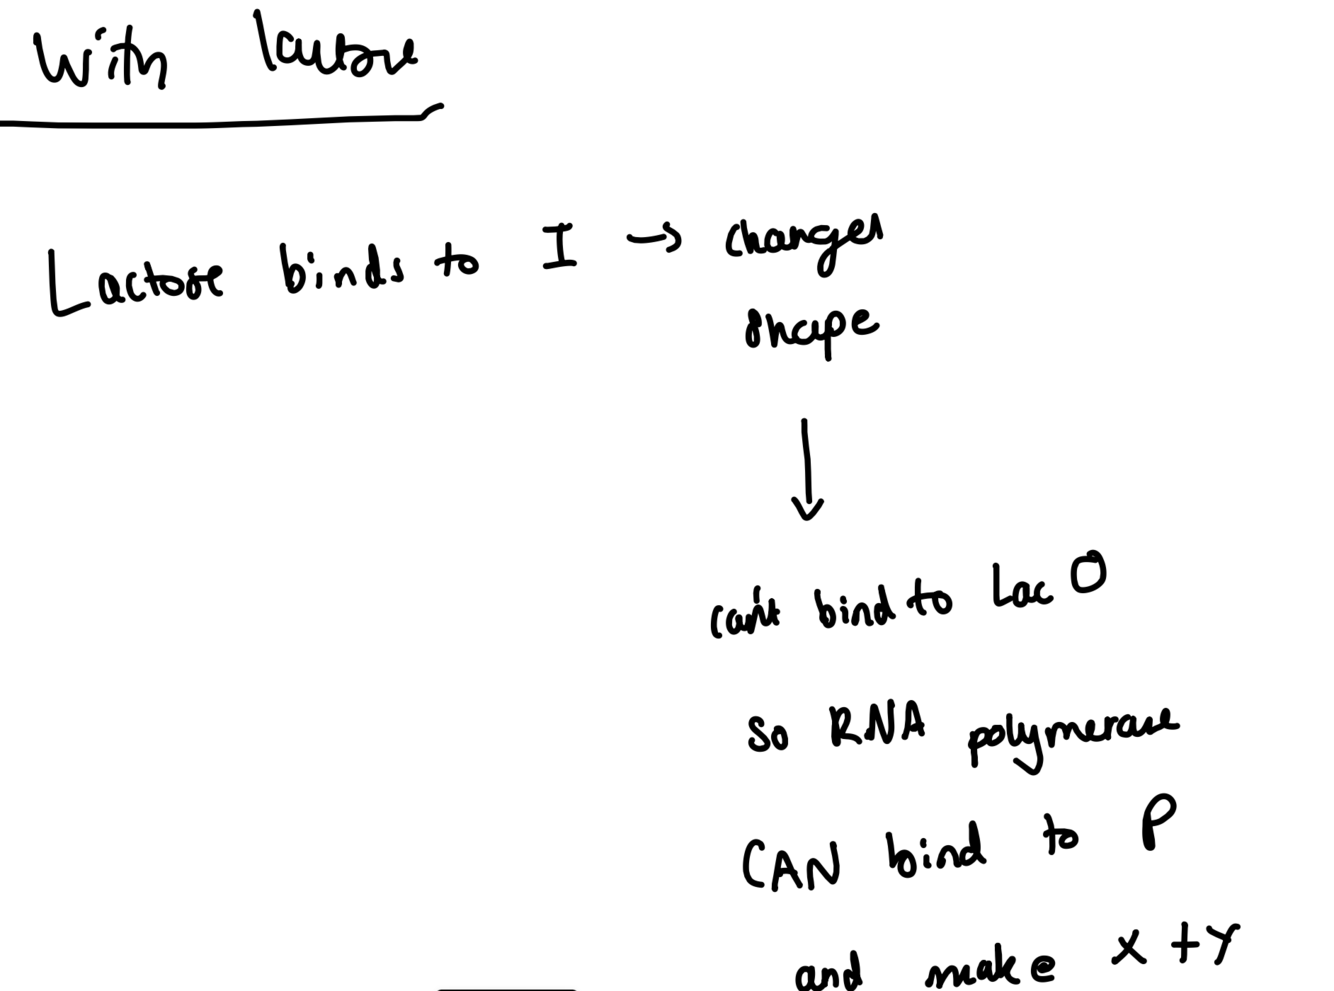 With lactose
Lactose binds to I → changes
shape
↓
can't bind to Lac O
so RNA polymerase
CAN bind to P
and make X + Y